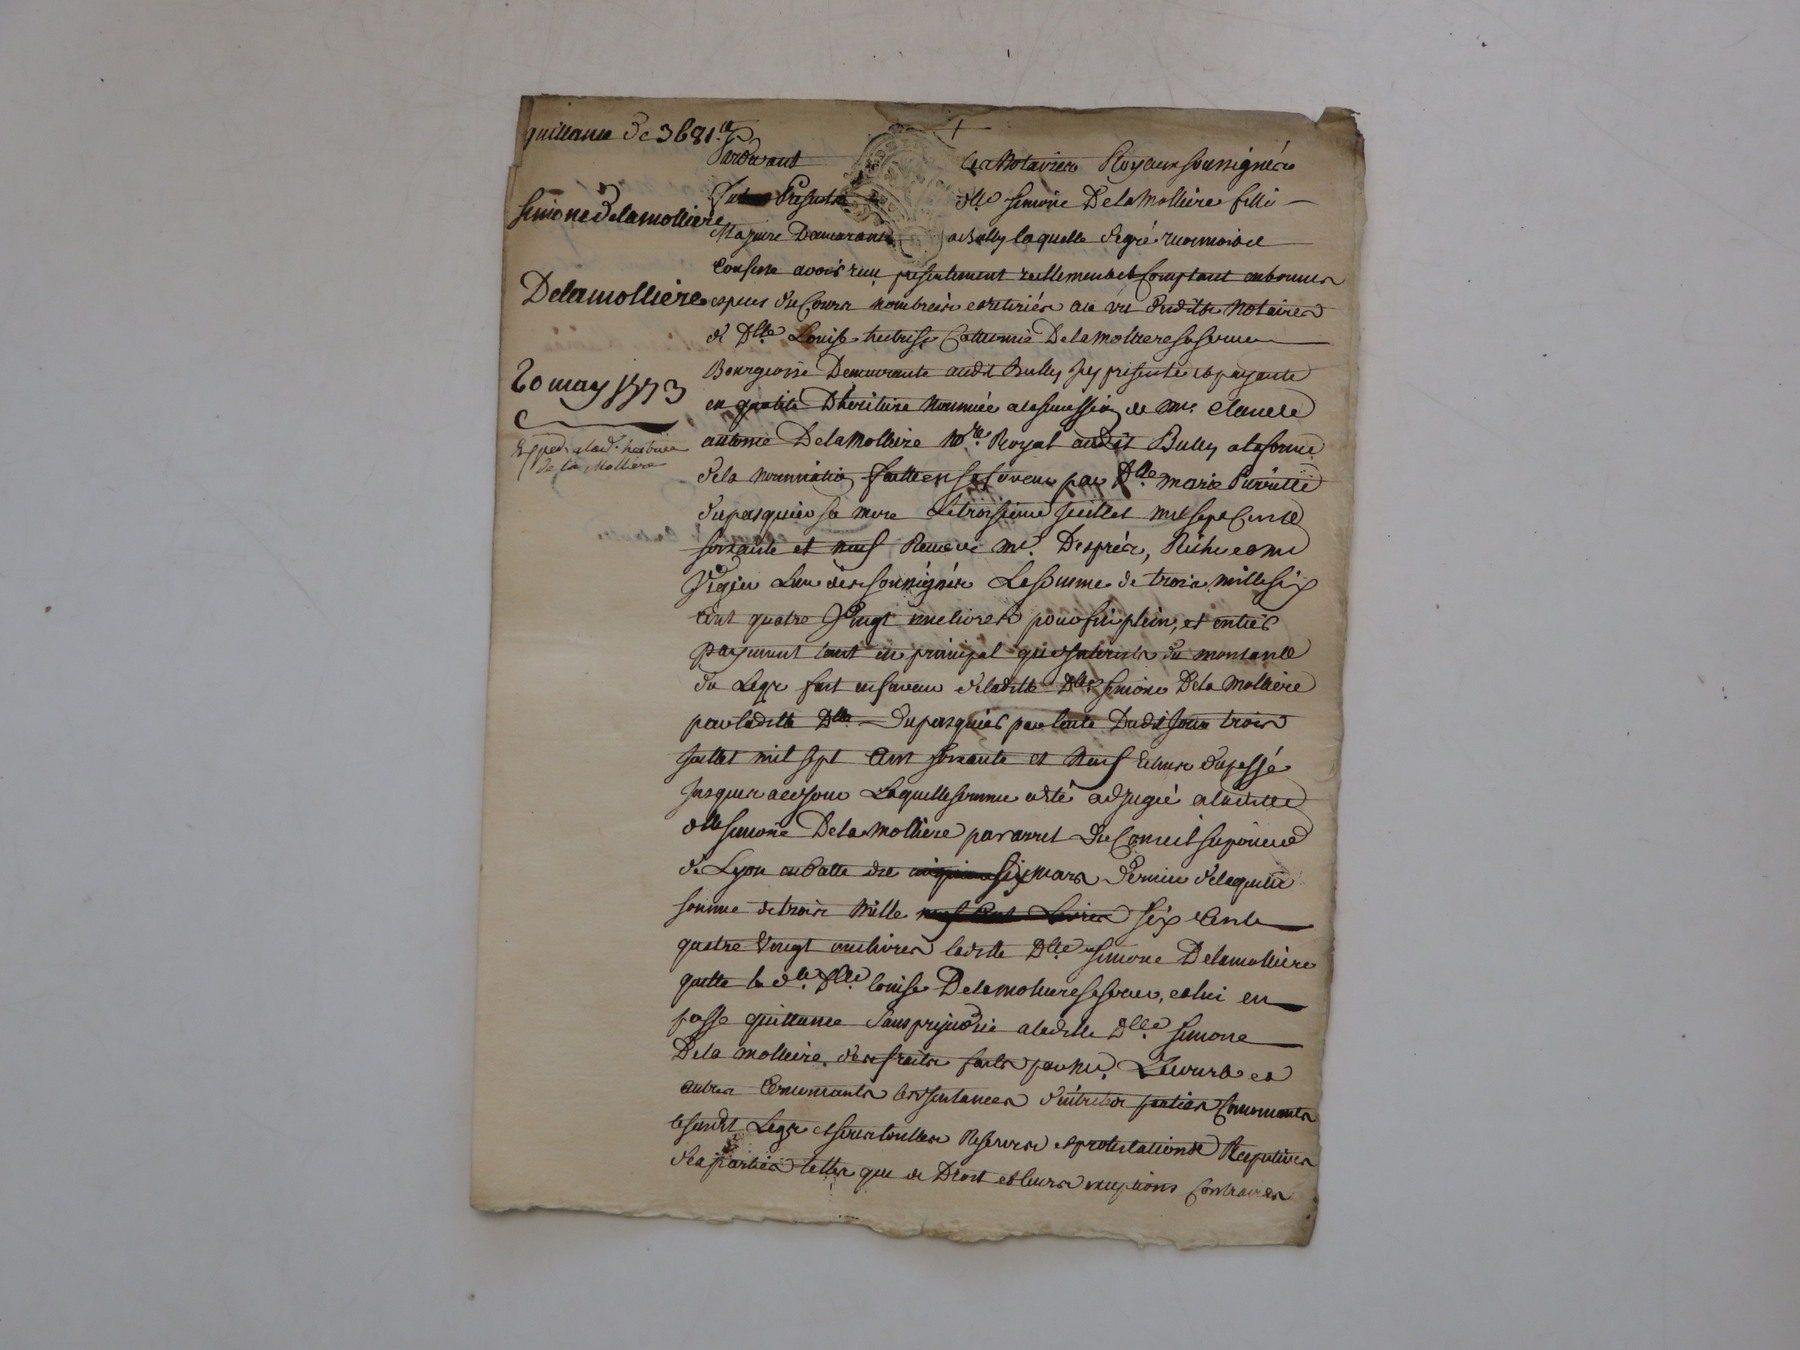 quittance de 3681 ₶
Simone Delamolliere
Delamolliere
20 may 1773
Expedie a lad.
de la Molliere
Pardevant les Notaires Royaux soussignés
fut Presente dlle simone Delamolliere fille
Majeure Demeurante a Bully laquelle de gré reconnoit et
Confesse avoir reçu presentement reellement et Comptant en bonnes
especes du Cours nombrées et retirées au vû desdits Notaires
de Dlle Louise Catherine Delamolliere sa soeur
Bourgeoise Demeurante audit Bully icy presente et payante
en qualité D'heritiere Nommée a la succession de me. Claude
antoine Delamolliere Nre. Royal audit Bully a la forme
de la Nomination faitte en sa faveur par Dlle marie
Dupasquier sa mere le troisieme Juillet mil sept Cent
soixante et neuf Receue me. Desprez,
l'un des soussignés La somme de trois mille six
Cent quatre Vingt une livres pour fin plein, et entier
payement tant en principal qu'interets du montant
du Legs fait en faveur de laditte Dlle simone Dela Molliere
par laditte Dlle Dupasquier par l'acte Dudit Jour trois
Juillet mil sept Cent soixante et Neuf
Jusques a ce Jour Laquelle somme a été adjugée a laditte
dlle simone Dela Molliere par arret du Conseil superieur
de Lyon en datte du six mars dernier de laquelle
somme de trois Mille six Cent
quatre Vingt une livres laditte Dlle simone Delamolliere
quitte la de. Dlle. louise Delamolliere sa soeur, et lui en
passe quittance sans prejudice a laditte Dlle simone
Dela molliere. des fraits faits par me.
autres Concernants les instances d'entre les parties Concernants
le susdit Legs et sous touttes Reserves et protestations Respectives
des parties telles que de Droit et leurs exceptions Contraires